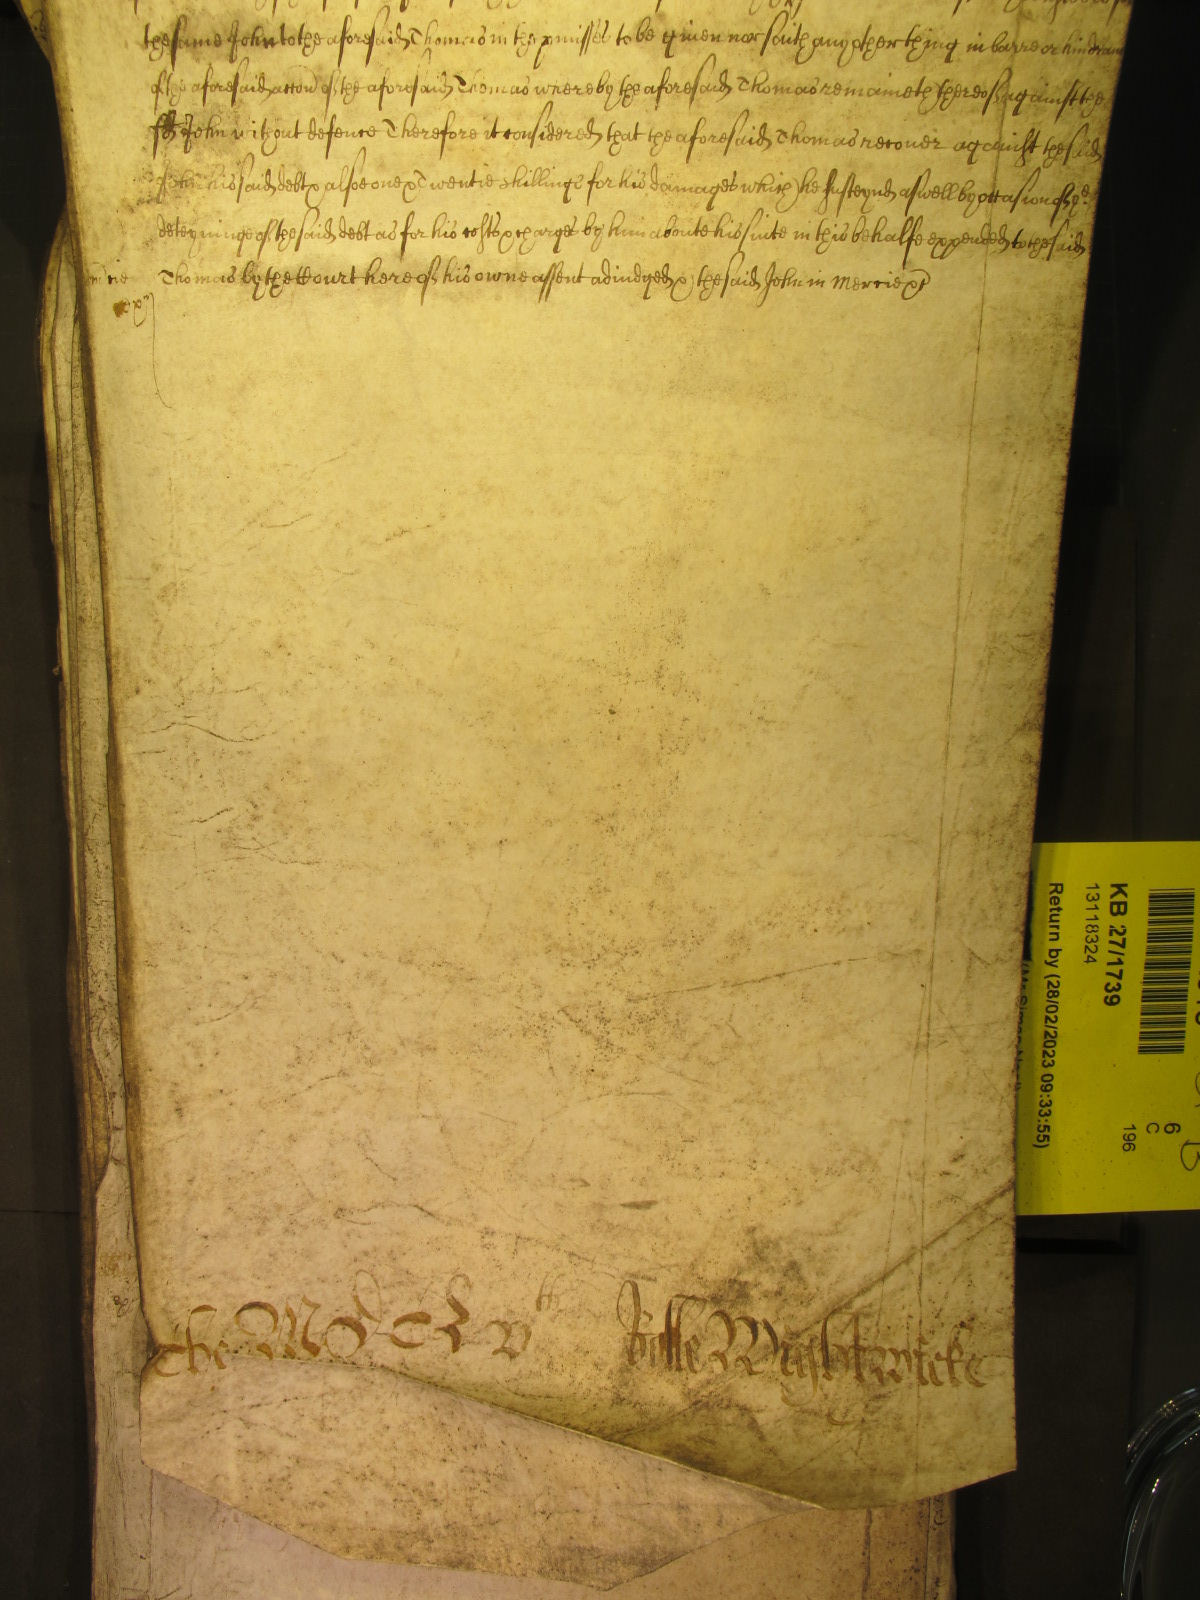 the same John to the aforesaid Thomas in the p̱misses to be given nor saith any other thing in barre or hindrance
of the aforesaid accoñ of the aforesaid Thomas whereby the aforesaid Thomas remaineth thereof against the
John without defence Therefore it considered that the aforesaid Thomas recover against the said
John his said debt & alsoe one & Twentie shillings for his damages which he susteynd aswell by occasion of ye
deteyninge of the said debt as for his costs & charges by him aboute his suite in this behalfe expended to the said
Thomas by the Court here of his owne assent adiudged & the said John in Mercie &c
The MDCLVth Rolle Wightwicke
KB 27/1739
13118324
Return by (28/02/2023 09:33:55)
6
C
196